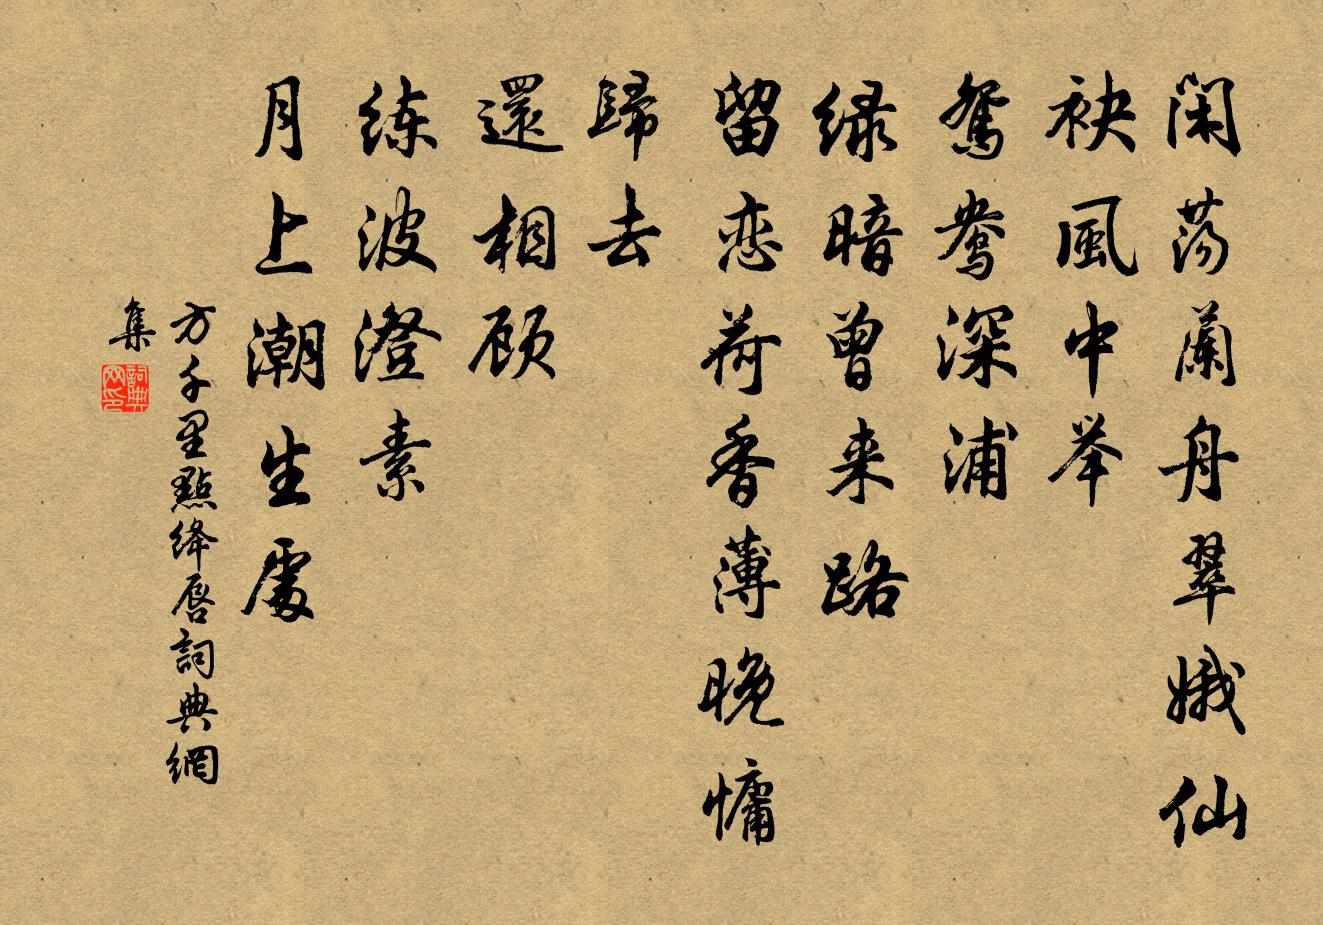 闲荡蘭舟翠娥仙
袂風中举
鸳鸯深浦
绿暗曾来路
留恋荷香薄晚慵
歸去
還相顾
练波澄素
月上潮生處
方千里點绛唇詞典網
集
詞典网印